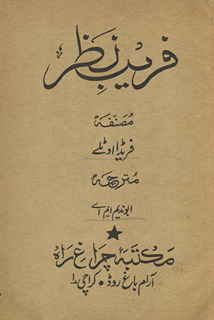 فریبِ نظر
مُصنّفہ
فریڈا اوٹلے
مترجمہ
ابوندیم ایم اے
مکتبہ چراغ راہ
آرام باغ روڈ • کراچی ۱